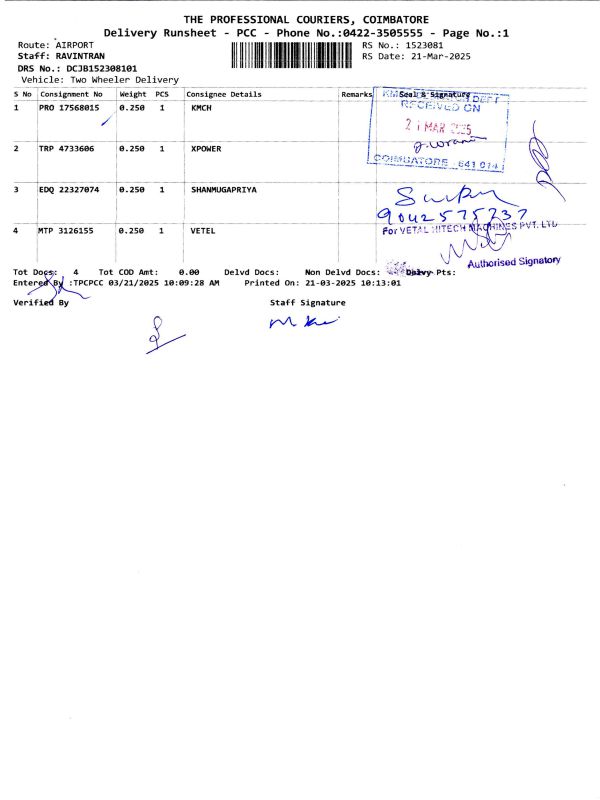 THE PROFESSIONAL COURIERS, COIMBATORE
Delivery Runsheet - PCC - Phone No.:0422-3505555 - Page No.:1
Route: AIRPORT
RS No.: 1523081
Staff: RAVINTRAN
RS Date: 21-Mar-2025
DRS No.: DCJB152308101
Vehicle: Two Wheeler Delivery
S No Consignment No Weight PCS Consignee Details Remarks Seal & Signature
1 PRO 17568015 0.250 1 KMCH
RECEIVED ON
21 MAR 2025
COIMBATORE - 641 014
2 TRP 4733606 0.250 1 XPOWER
3 EDQ 22327074 0.250 1 SHANMUGAPRIYA
9042575237
4 MTP 3126155 0.250 1 VETEL
For VETAL HITECH MACHINES PVT. LTD
Authorised Signatory
Tot Docs: 4 Tot COD Amt: 0.00 Delvd Docs: Non Delvd Docs: Delvy Pts:
Entered By :TPCPCC 03/21/2025 10:09:28 AM Printed On: 21-03-2025 10:13:01
Verified By Staff Signature